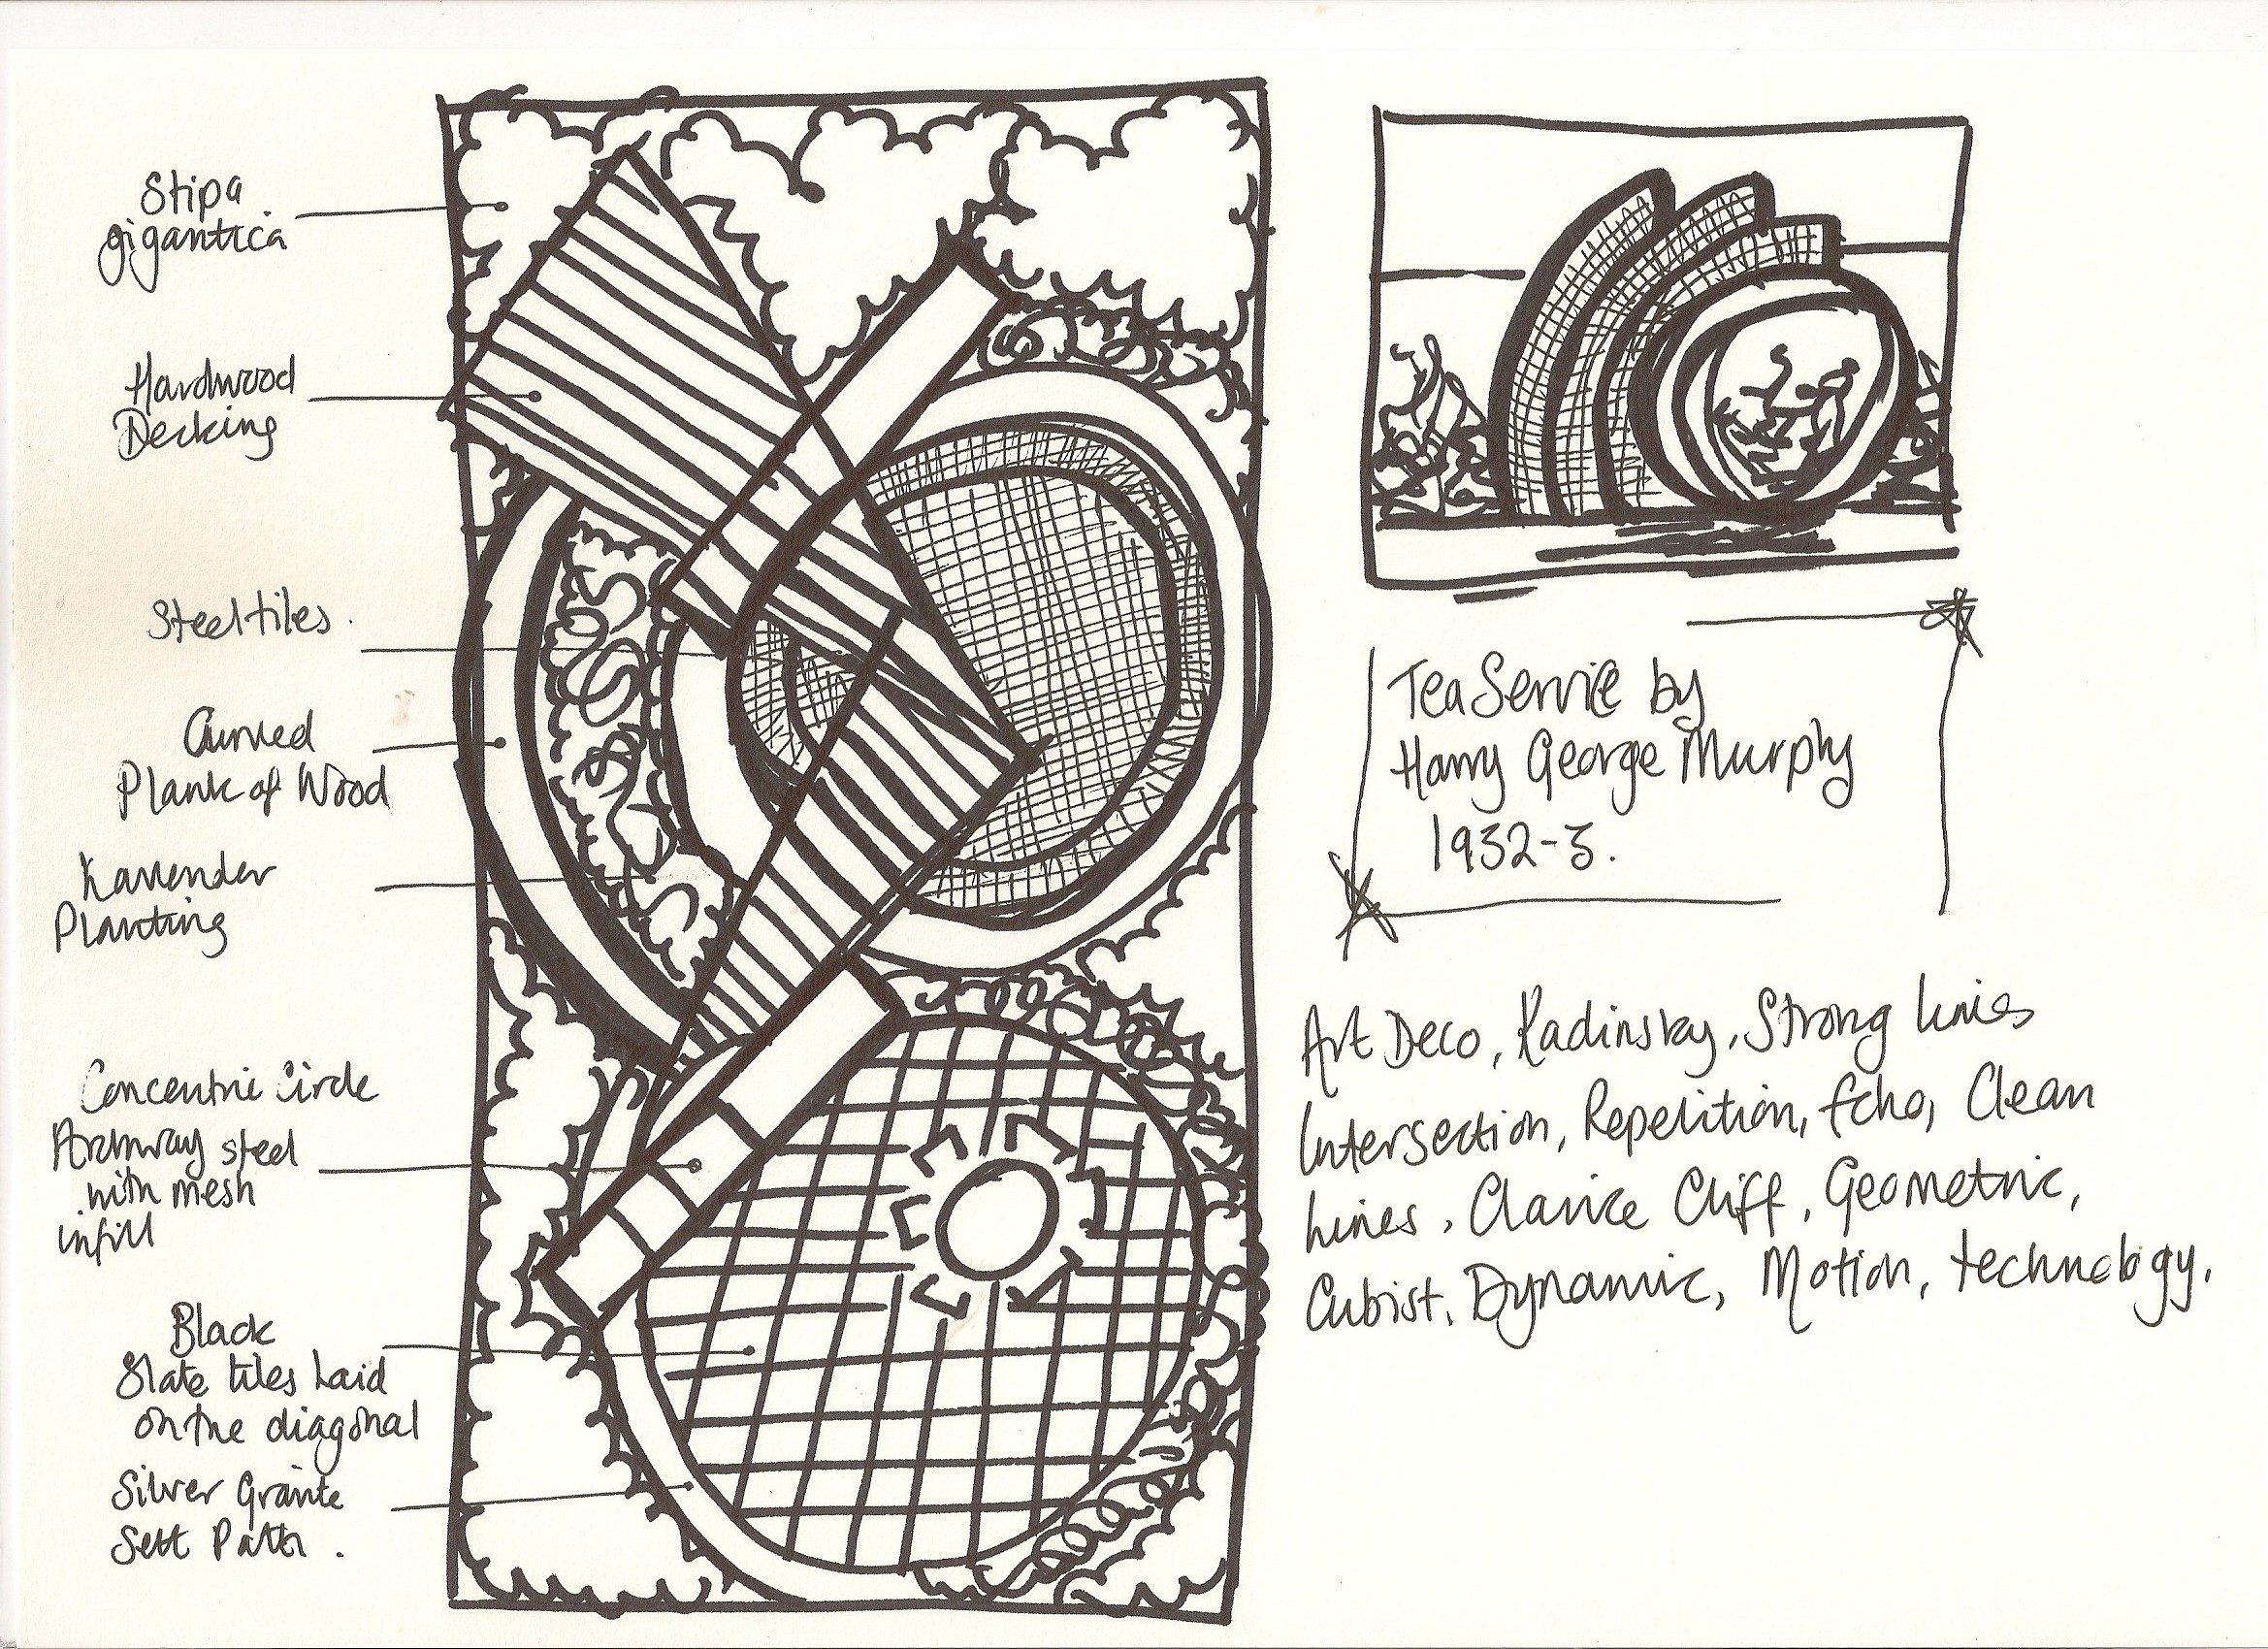 Stipa
gigantica
Hardwood
Decking
Steel tiles.
Curved
Plank of Wood
Lavender
Planting
Concentric Circle
Archway steel
with mesh
infill
Black
Slate tiles Laid
on the diagonal
Silver Granite
Sett Path.
Tea Service by
Harry George Murphy
1932-3.
Art Deco, Kadinsky, Strong lines
Intersection, Repetition, Echo, Clean
Lines. Clarice Cliff, Geometric,
Cubist. Dynamic, Motion, technology.